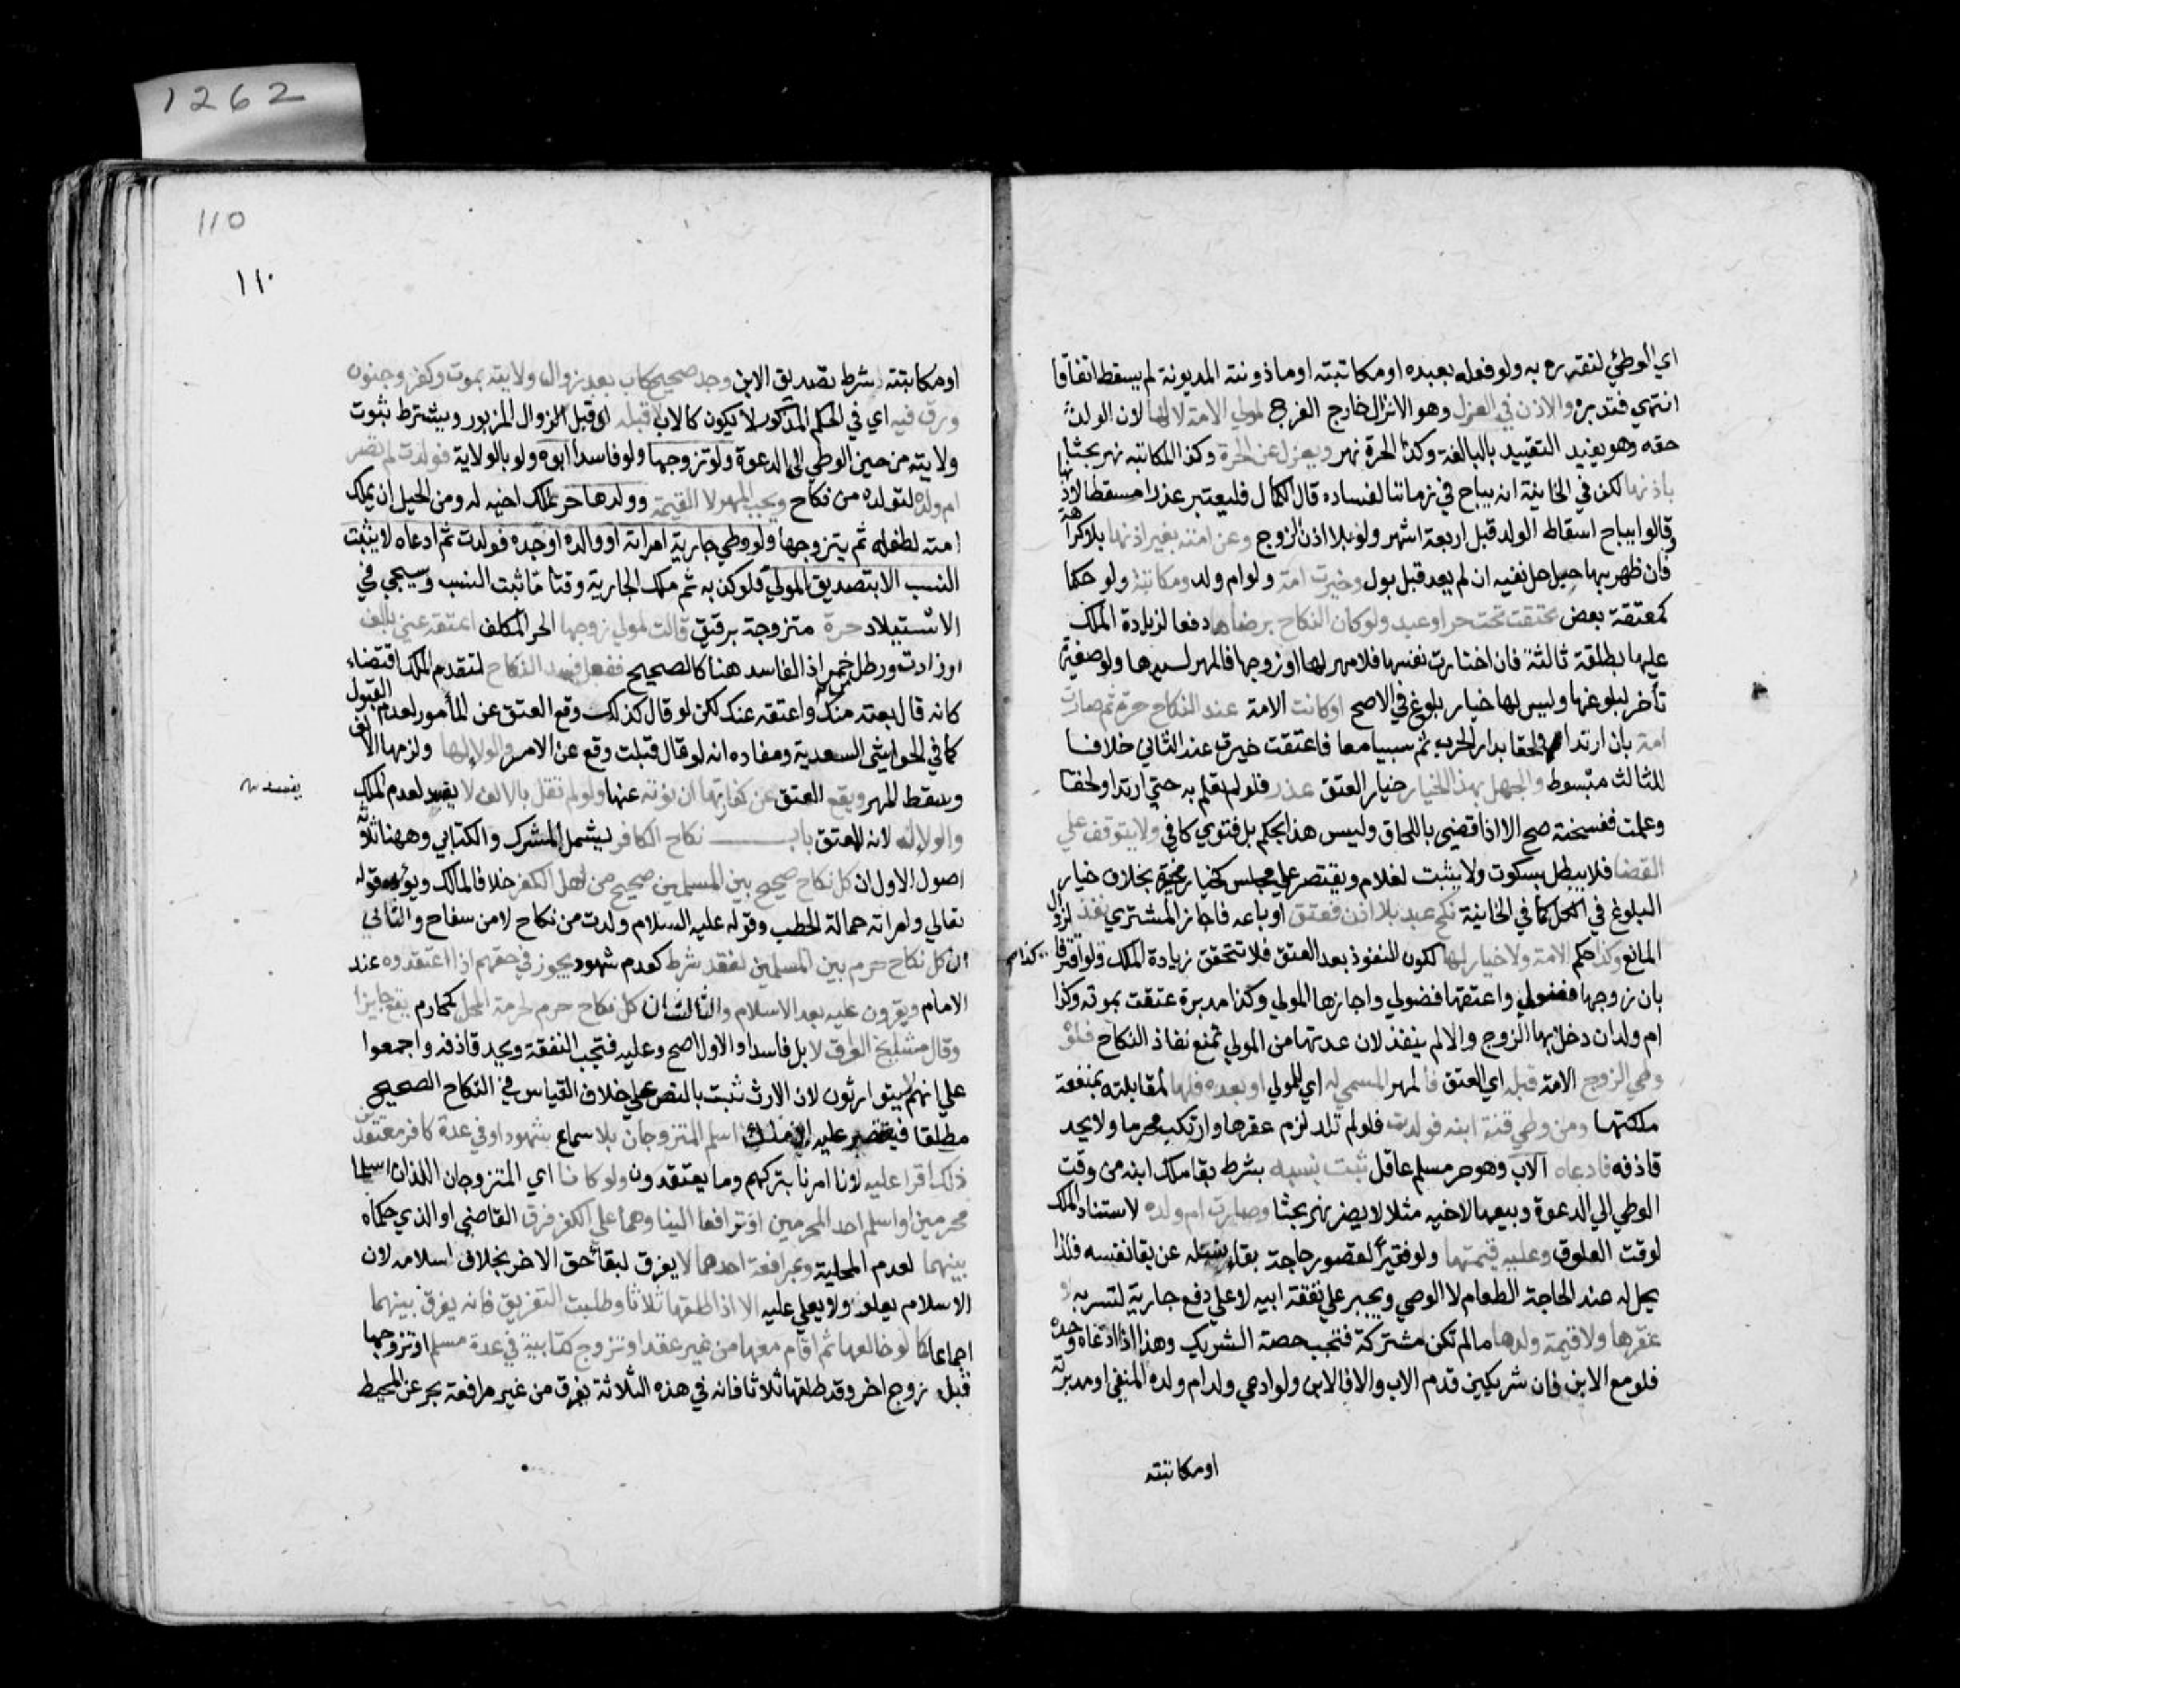 اي الوطئ لتقرره به ولو فعله بعبده او مكاتبته او ماذونته المديونة لم يسقط اتفاقا
انتهي فتدبره والاذن في العزل وهو الانزال خارج الفرج لمولي الامة لا لها لان الولد
حقه وهو يفيد التقييد بالبالغة وكذا الحرة نهر ويعزل عن الحرة وكذا المكاتبه نهر بحثا
باذنها لكن في الخانية انه يباح في زماننا لفساده قال الكمال فليعتبر عذرا مسقطا لاذنها
وقالوا يباح اسقاط الولد قبل اربعة اشهر ولو بلا اذن الزوج وعن امته بغير اذنها بلا كراهة
فان ظهر بها حبل حل نفيه ان لم يعد قبل بول وخيرت امة ولو ام ولد ومكاتبة ولو حكما
كمعتقة بعض عتقت تحت حر او عبد ولو كان النكاح برضاها دفعا لزيادة الملك
عليها بطلقة ثالثة فان اختارت نفسها فلا مهر لها او زوجها فالمهر لسيدها ولو صغيرة
تأخر لبلوغها وليس لها خيار بلوغ في الاصح او كانت الامة عند النكاح حرة ثم صارت
امة بان ارتدا ولحقا بدار الحرب ثم سبيا معا فاعتقت خيرت عند الثاني خلافا
للثالث مبسوط والجهل بهذا الخيار خيار العتق عذر فلو لم تعلم به حتي ارتدا ولحقا
وعلمت ففسخت صح الا اذا قضي باللحاق وليس هذا بحكم بل فتوي كافي ولا يتوقف علي
القضا فلا يبطل بسكوت ولا يثبت لغلام ويقتصر علي مجلس كخيار مخيرة بخلاف خيار
البلوغ في الكل كما في الخانية نكح عبد بلا اذن فعتق او باعه فاجاز المشتري نفذ لزوال
المانع وكذا حكم الامة ولا خيار لها لكون النفوذ بعد العتق فلا تتحقق زيادة الملك ولو اقترفا كذا م
بان زوجها فضولي واعتقها فضولي واجازها المولي وكذا مدبرة عتقت بموته وكذا
ام ولد ان دخل بها الزوج والا لم ينفذ لان عدتها من المولي تمنع نفاذ النكاح فلو
وطي الزوج الامة قبله اي العتق فالمهر المسمي له اي للمولي او بعده فلها لمقابلته بمنفعة
ملكتها ومن وطي قنة ابنه فولدت فلو لم تلد لزم عقرها وارتكب محرما ولا يحد
قاذفه فادعاه الاب وهو حر مسلم عاقل ثبت نسبه بشرط بقا ملك ابنه من وقت
الوطي الي الدعوة وبيعها لاخيه مثلا لا يضر نهر بحثا وصارت ام ولده لاستناد الملك
لوقت العلوق وعليه قيمتها ولو فقيرا لقصور حاجة بقاء نسله عن بقا نفسه فلذا
يحل له عند الحاجة الطعام لا الوطي ويجبر علي نفقة ابيه لا علي دفع جارية لتسريه لا
عقرها ولا قيمة ولدها ما لم تكن مشتركة فتجب حصة الشريك وهذا اذا ادعاه وحده
فلو مع الابن فان شريكين قدم الاب والا فالابن ولو ادعي ولد ام ولده المنفي او مدبرته
او مكاتبته
110
١١٠
او مكاتبته شرط تصديق الابن وجد صحيح كاب بعد زوال ولايته بموت وكفر وجنون
ورق فيه اي في الحكم المذكور لا يكون كالاب قبله اي قبل الزوال المزبور ويشترط ثبوت
ولايته من حين الوطي الي الدعوة ولو تزوجها ولو فاسدا ابوه ولو بالولاية فولدت لم تصر
ام ولده لتولده من نكاح ويجب المهر لا القيمة وولدها حر بملك اخيه له ومن الحيل ان يملك
امته لطفله ثم يتزوجها ولو وطي جارية امراته او والده او جده فولدت ثم ادعاه لا يثبت
النسب الا بتصديق المولي فلو كذبه ثم ملك الجارية وقتا ما ثبت النسب وسيجي في
الاستيلاد حرة متزوجة برقيق قالت لمولي زوجها الحر المكلف اعتقه عني بالف
او زادت ورطل خمر اذ الفاسد هنا كالصحيح ففعل فسد النكاح لتقدم الملك اقتضاء
كانه قال بعته منك واعتقه عنك لكن لو قال كذلك وقع العتق عن المأمور لعدم القبول
كما في الحواشي السعدية ومفاده انه لو قال قبلت وقع عن الامر والولا لها ولزمها الالف
وسقط المهر ويقع العتق عن كفارتها ان نوته عنها ولو لم تقل بالالف لا يفسد لعدم الملك
يفسد
والولا له لانه المعتق باب نكاح الكافر يشمل المشرك والكتابي وههنا ثلاثة
اصول الاول ان كل نكاح صحيح بين المسلمين صحيح من اهل الكفر خلافا لمالك ويؤيده قوله
تعالي وامراته حمالة الحطب وقوله عليه السلام ولدت من نكاح لا من سفاح والثاني
ان كل نكاح حرم بين المسلمين لفقد شرط كعدم شهود يجوز في حقهم اذا اعتقدوه عند
الامام ويقرون عليه بعد الاسلام والثالث ان كل نكاح حرم لحرمة المحل كمحارم يقع جايزا
وقال مشايخ العراق لا بل فاسدا والاول اصح وعليه فتجب النفقة ويحد قاذفه واجمعوا
علي انهم لا يتوارثون لان الارث ثبت بالنص علي خلاف القياس في النكاح الصحيح
مطلقا فيقتصر عليه ابن ملك اسلم المتزوجان بلا سماع شهود او في عدة كافر معتقدين
ذلك اقرا عليه لانا امرنا بتركهم وما يعتقدون ولو كانا اي المتزوجان اللذان اسلما
محرمين او اسلم احد المحرمين او ترافعا الينا وهما علي الكفر فرق القاضي او الذي حكماه
بينهما لعدم المحلية وبمرافعة احدهما لا يفرق لبقاء حق الاخر بخلاف اسلامه لان
الاسلام يعلو ولا يعلي عليه الا اذا طلقها ثلاثا وطلبت التفريق فانه يفرق بينهما
اجماعا كما لو خالعها ثم اقام معها من غير عقد او تزوج كتابية في عدة مسلم او تزوجها
قبل زوج اخر وقد طلقها ثلاثا فانه في هذه الثلاثة يفرق من غير مرافعة بحر عن المحيط
1262